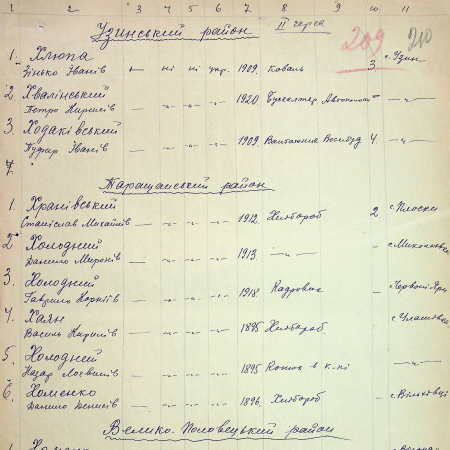 1 2 3 4 5 6 7 8 9 10 11
Узинський район II черга 209 210
1. Хлюпа
Зінько Іванів — ні ні укр. 1909. Коваль 3 с. Узин
2 Хвалінський
Петро Кирилів — -"- -"- -"- 1920. Бухгалтер — -"-
3. Ходаківський
Іванів — -"- -"- -"- 1909. 4. -"-
Таращанський район
1. Хранівський
Станіслав Михайлів — -"- -"- -"- 1912. Хлібороб 2 с. Плоски
2 Холодний
Данило Миронів — -"- -"- -"- 1913 — -"- —
3. Холодний
Гаврило Корніїв — -"- -"- -"- 1918. Кадровик —
4. Хаян
Василь Кирилів — -"- -"- -"- 1895 Хлібороб. —
5. Холодний
Назар Логвинів — -"- -"- -"- 1895 Конюх в к-пі — -"-
6. Хоменко
Данило Денисів — -"- -"- -"- 1896. Хлібороб —
Велико-Половецький район